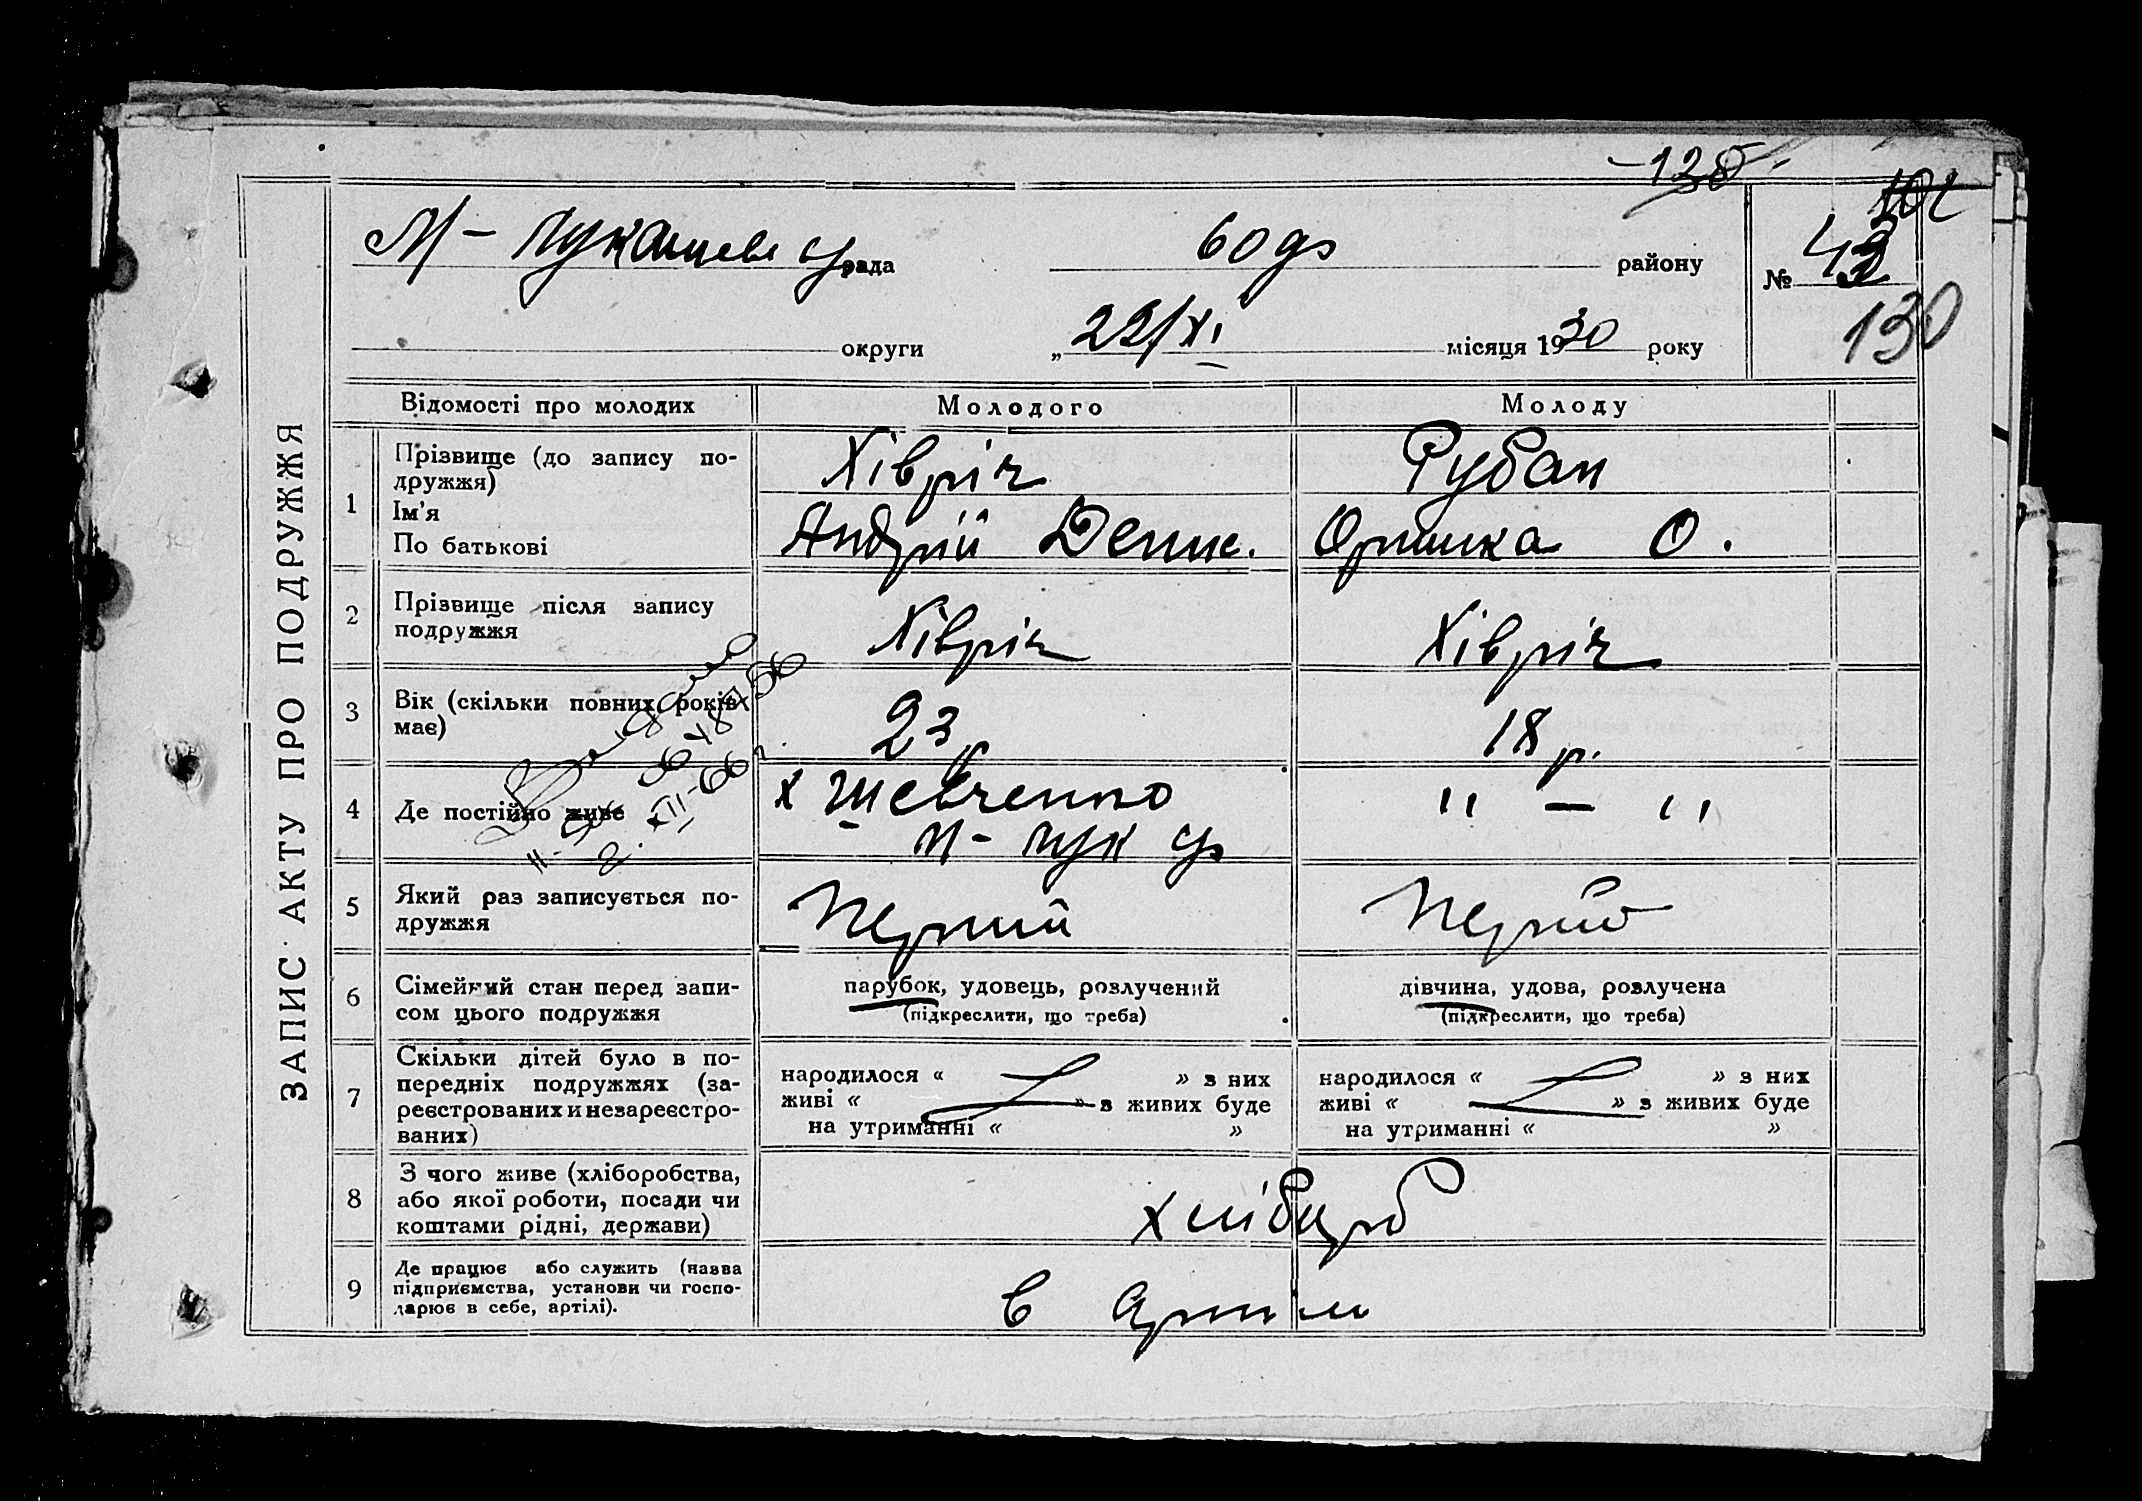 - 128 -
М - Лукашеве ср рада району
№ 43
130
округи „ 22/XI місяця 1930 року
ЗАПИС АКТУ ПРО ПОДРУЖЖЯ
Відомості про молодих Молодого Молоду
1 Прізвище (до запису по-
дружжя) Хівріч Рубан
Ім'я
По батькові Андрій Денис. Оришка О.
2 Прізвище після запису
подружжя Хівріч Хівріч
3 Вік (скільки повних років
має) 23 р 18 р.
4 Де постійно живе х Шевченко " — "
М - Лук ср
5 Який раз записується по-
дружжя Перший Перш
6 Сімейний стан перед запи-
сом цього подружжя
парубок, удовець, розлучений
(підкреслити, що треба)
дівчина, удова, розлучена
(підкреслити, що треба)
7 Скільки дітей було в по-
передніх подружжях (за-
реєстрованих и незареєстро-
ваних)
народилося « » з них
живі « » з живих буде
на утриманні « »
народилося « » з них
живі « » з живих буде
на утриманні « »
8 З чого живе (хліборобства,
або якої роботи, посади чи
коштами рідні, держави)
хлібороб
9 Де працює або служить (назва
підприємства, установи чи госпо-
дарює в себе, артілі).
в Артілі